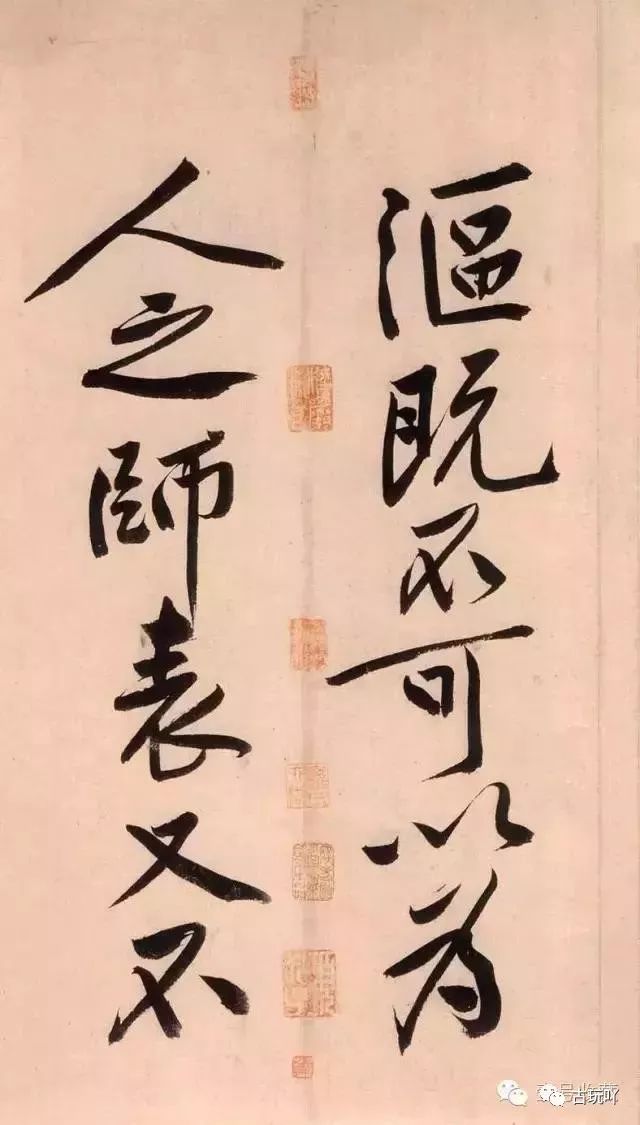 漚既不可以為
人之師表又不
古玩吖